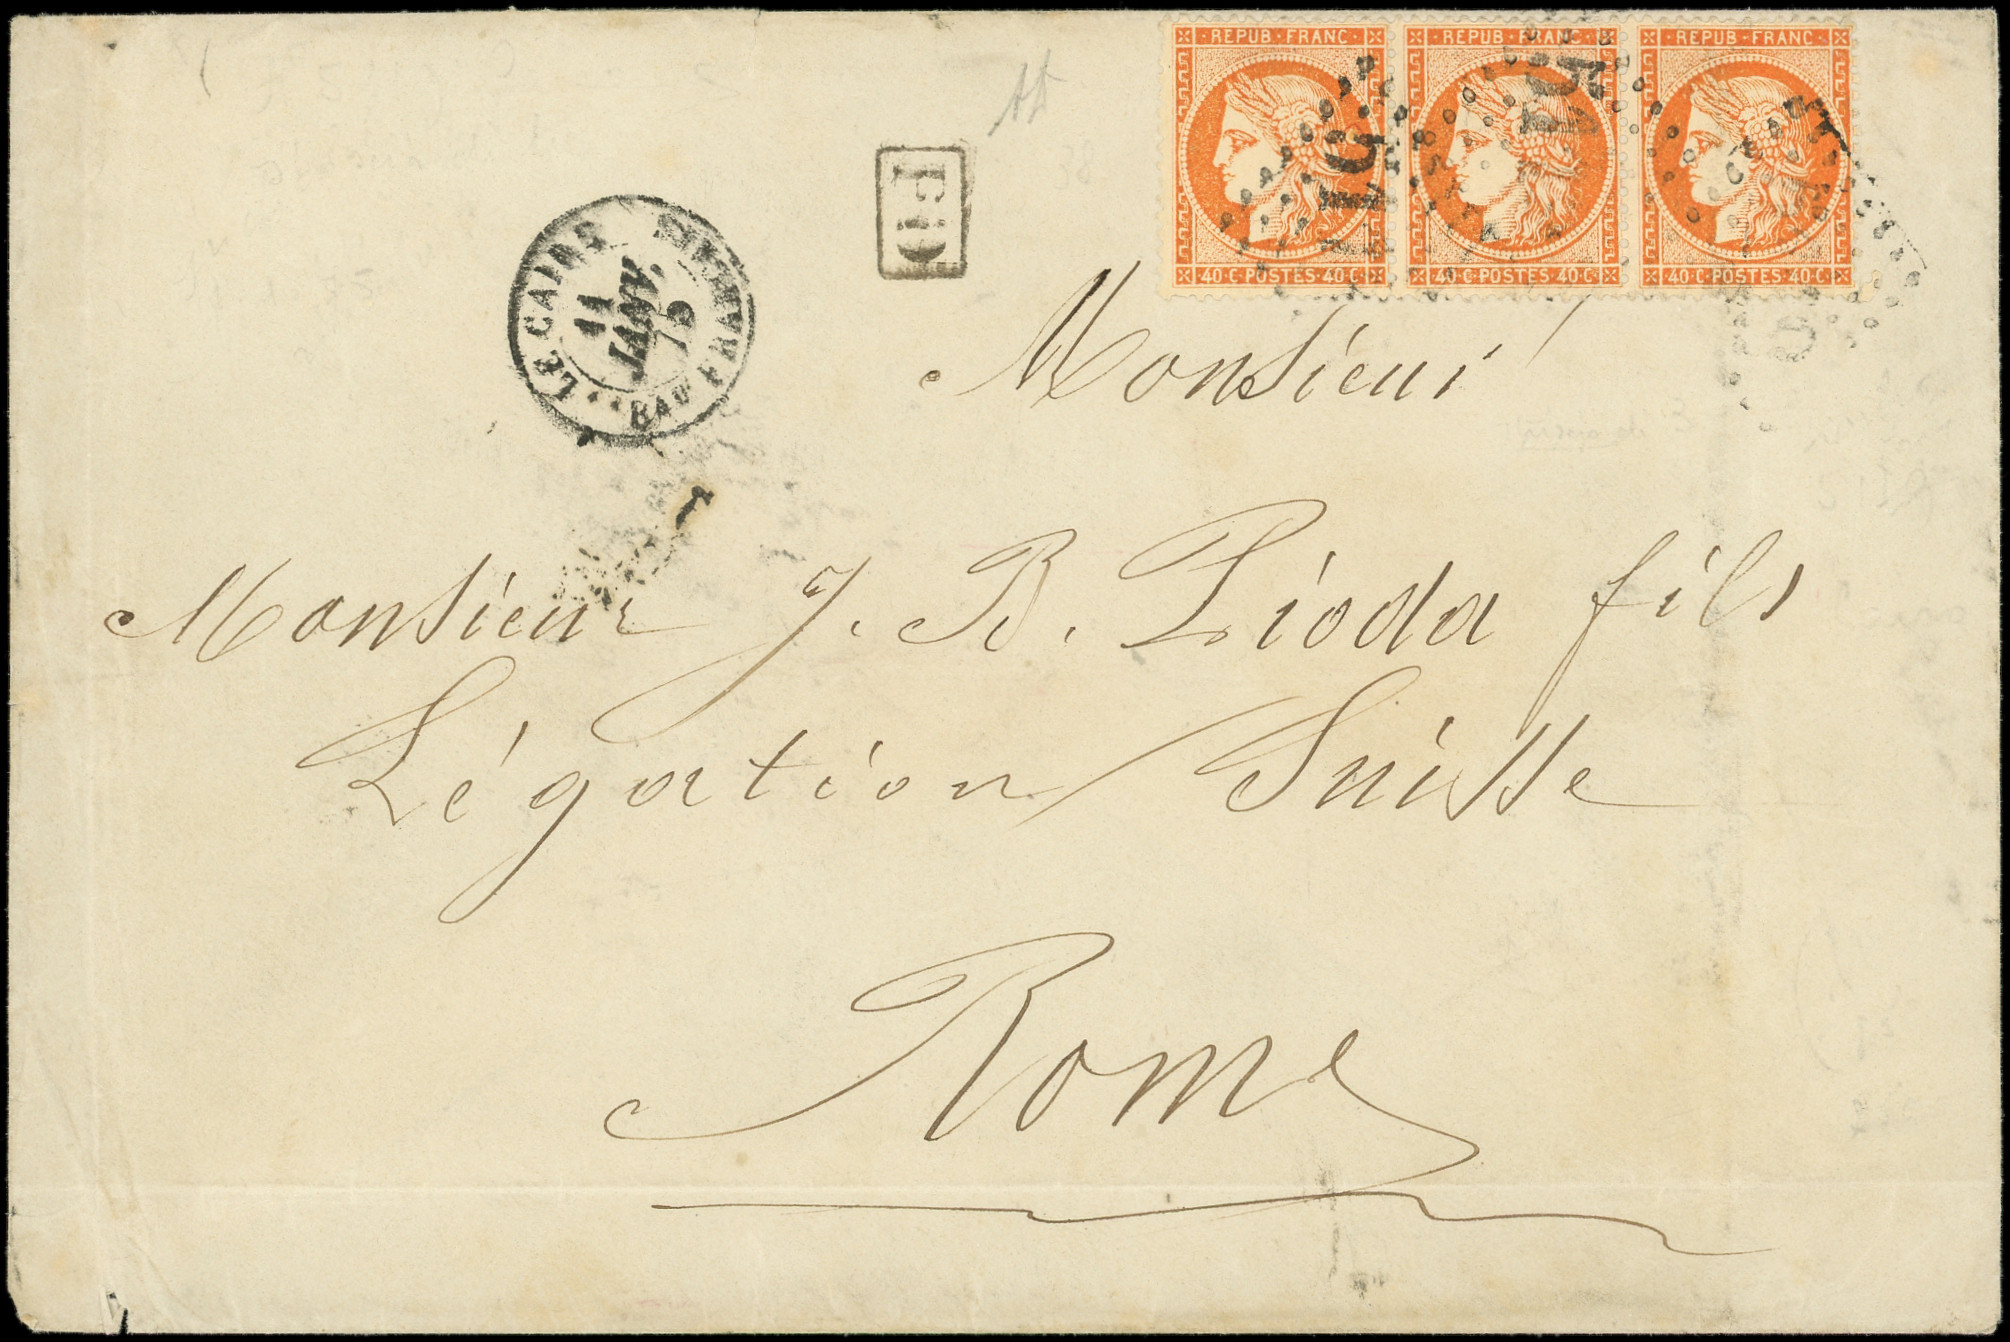 REPUB · FRANC · REPUB · FRANC · REPUB · FRANC ·
40 · C · POSTES · 40 · C · 40 · C · POSTES · 40 · C · 40 · C · POSTES · 40 · C ·
PD
LE CAIRE
11
JANV.
75
BAU FRANÇAIS
Monsieur
Monsieur J. B. Pioda fils
Légation Suisse
Rome